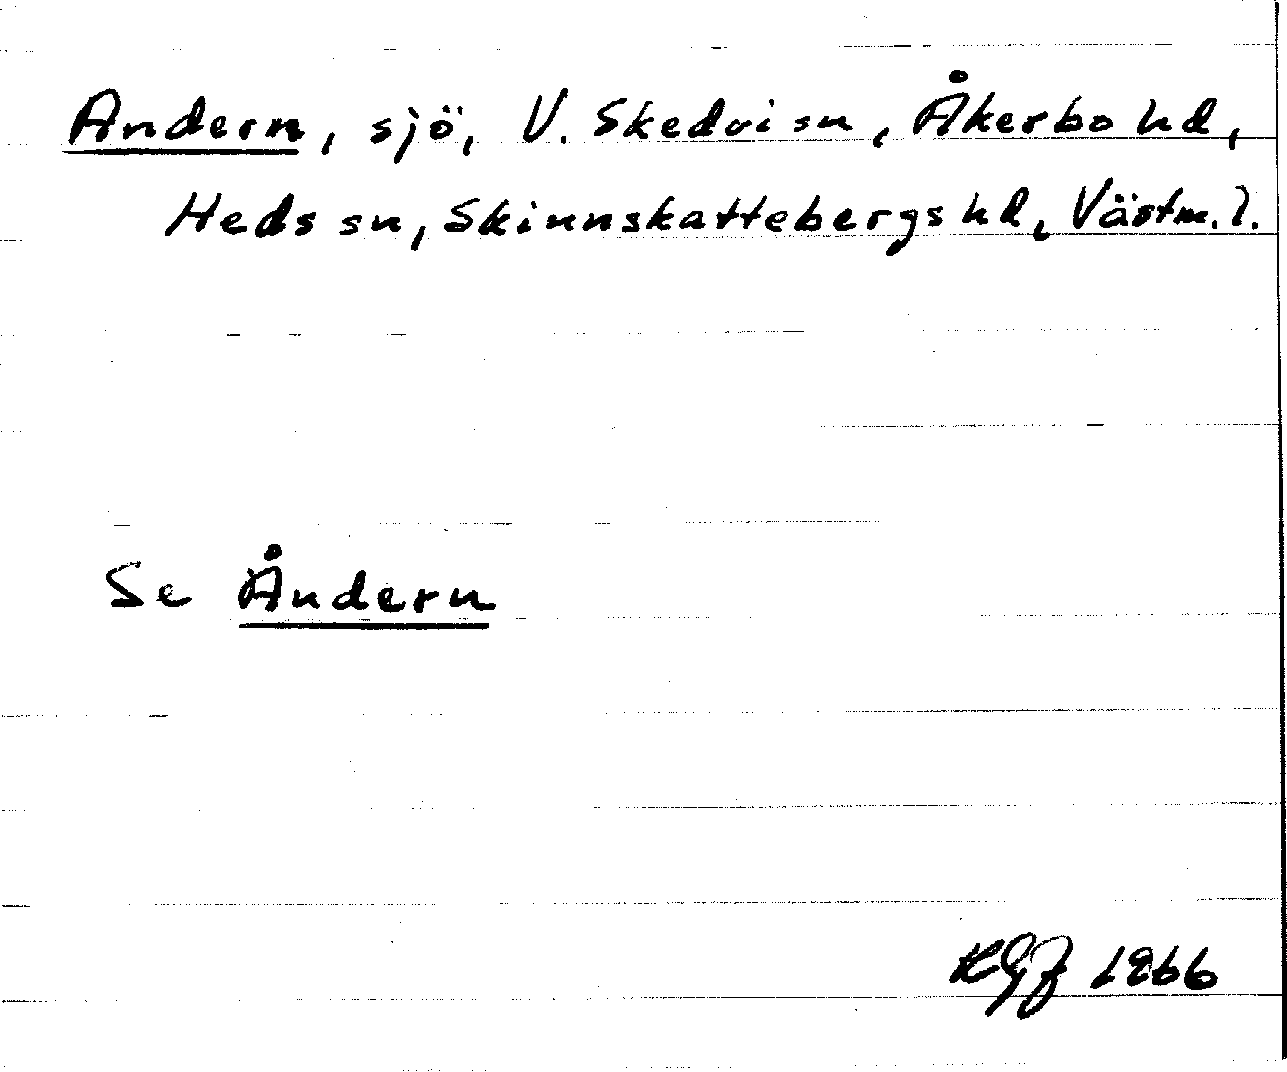 Andern, sjö, V. Skedvi sn, Åkerbo hd,
Heds sn, Skinnskattebergs hd, Västm. l.
Se Åndern
KGJ 1966